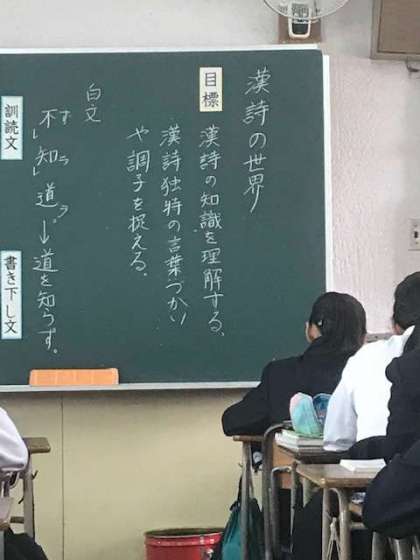 漢詩の世界
目標
漢詩の知識を理解する。
漢詩独特の言葉づかい
や調子を捉える。
白文
不レ知レ道 → 道を知らず。
ず
ラ
ヲ
訓読文
書き下し文